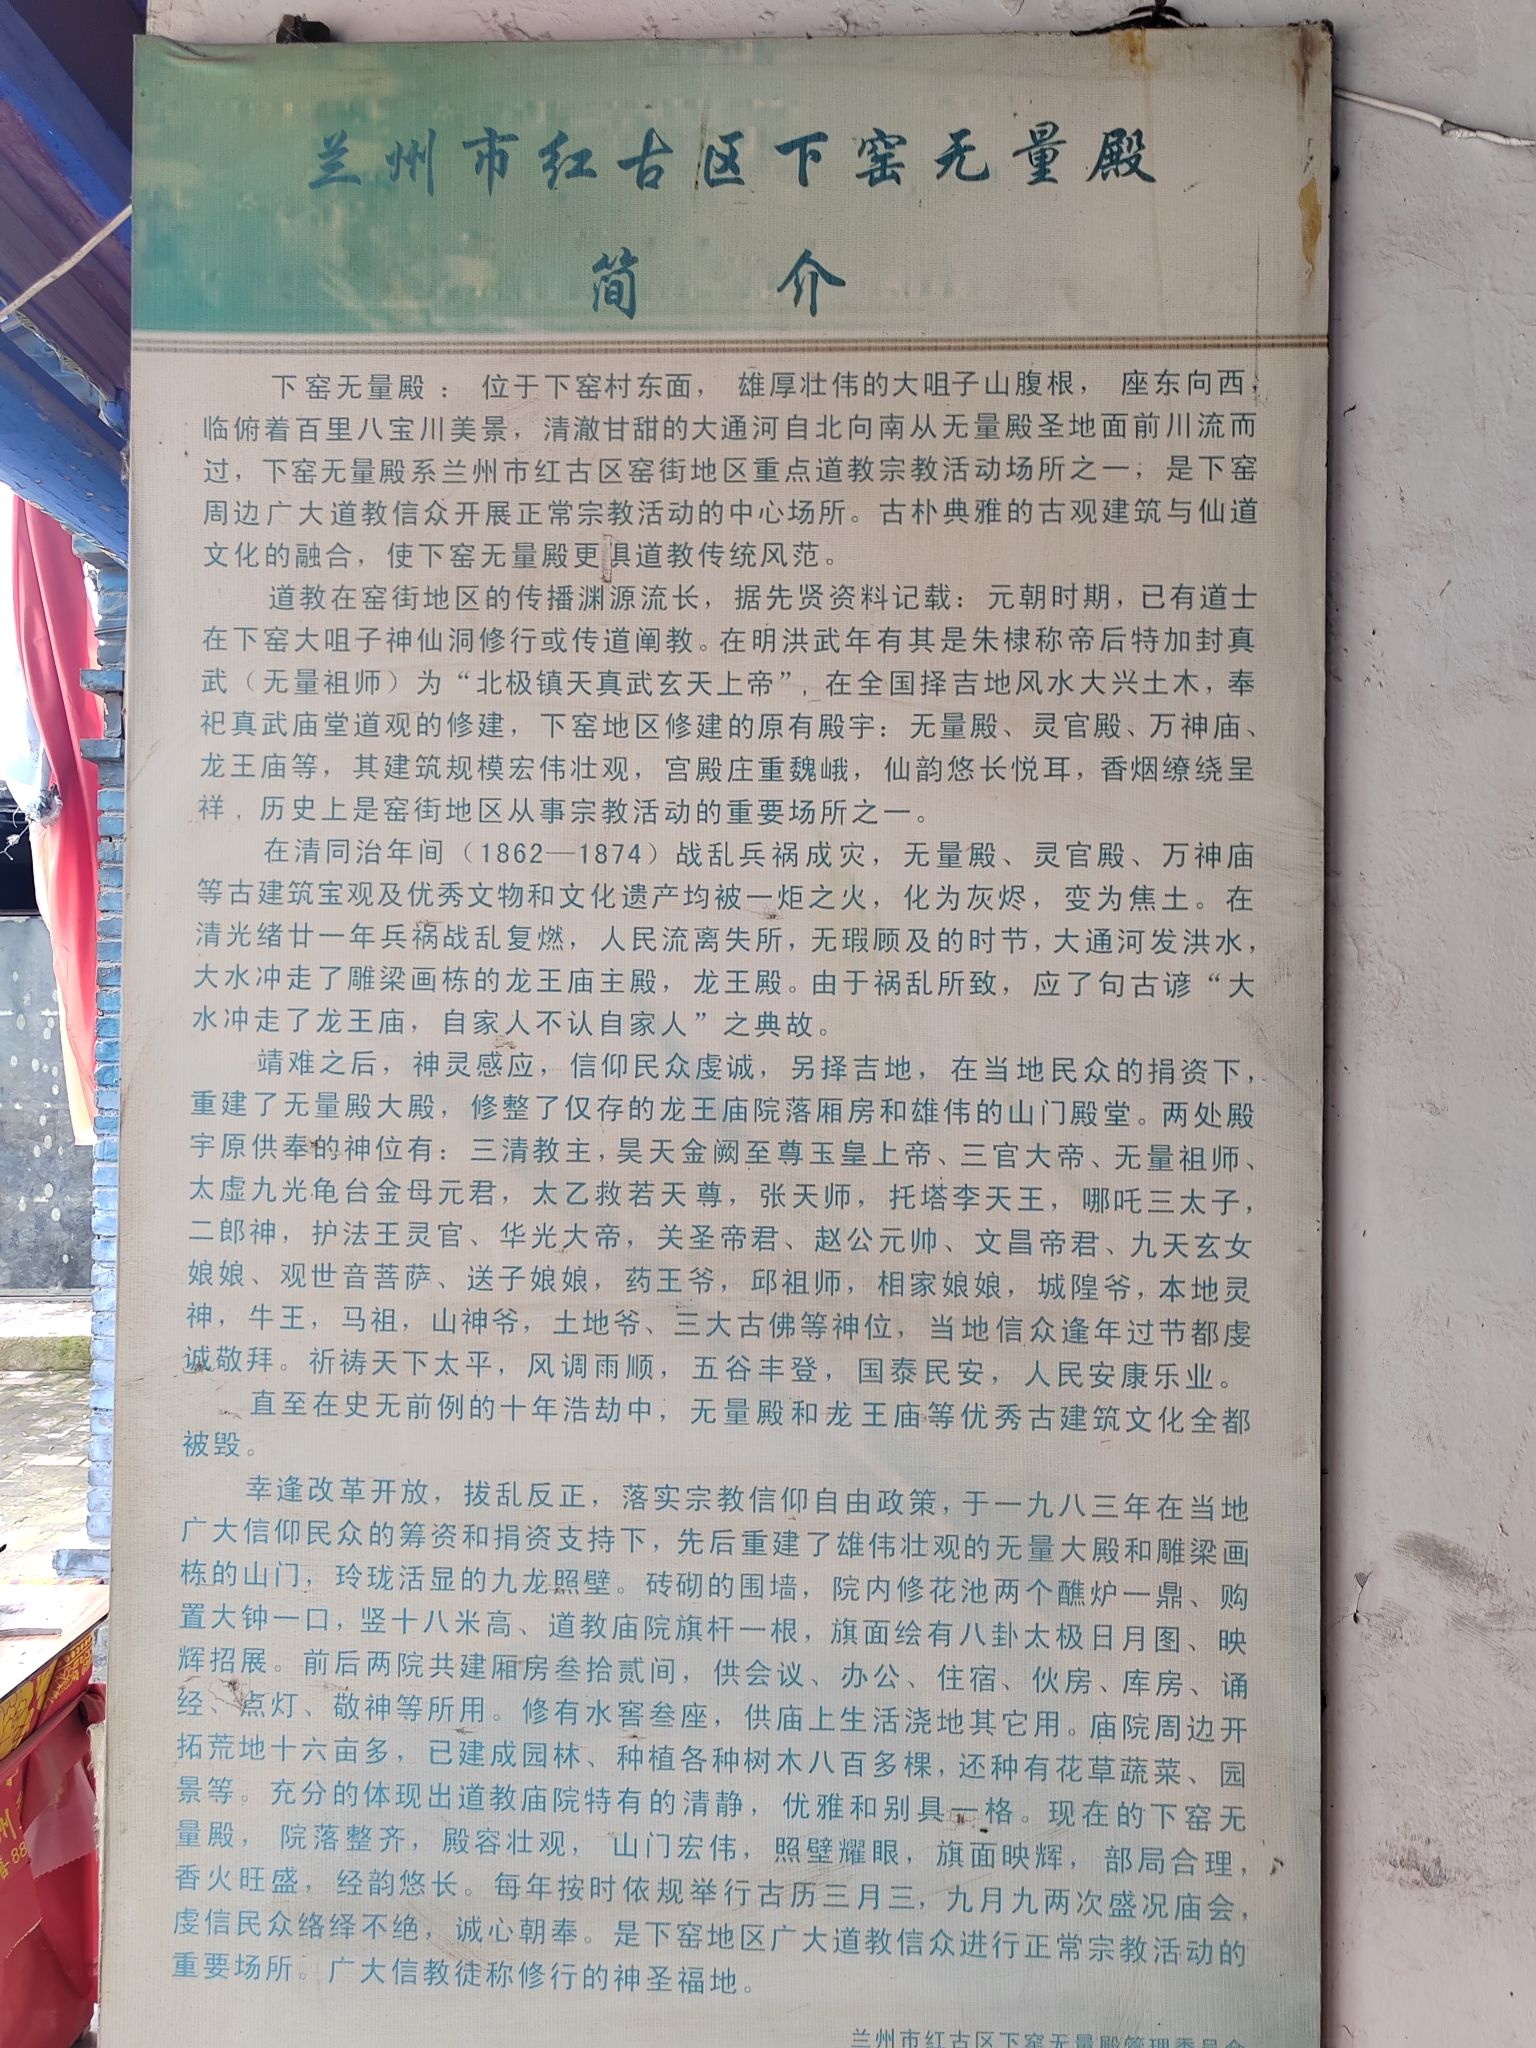 兰州市红古区下窑无量殿
简介
下窑无量殿： 位于下窑村东面， 雄厚壮伟的大咀子山腹根， 座东向西，
临俯着百里八宝川美景，清澈甘甜的大通河自北向南从无量殿圣地面前川流而
过，下窑无量殿系兰州市红古区窑街地区重点道教宗教活动场所之一，是下窑
周边广大道教信众开展正常宗教活动的中心场所。古朴典雅的古观建筑与仙道
文化的融合，使下窑无量殿更俱道教传统风范。
道教在窑街地区的传播渊源流长，据先贤资料记载：元朝时期，已有道士
在下窑大咀子神仙洞修行或传道阐教。在明洪武年有其是朱棣称帝后特加封真
武（无量祖师）为“北极镇天真武玄天上帝”，在全国择吉地风水大兴土木，奉
祀真武庙堂道观的修建，下窑地区修建的原有殿宇：无量殿、灵官殿、万神庙、
龙王庙等，其建筑规模宏伟壮观，宫殿庄重魏峨，仙韵悠长悦耳，香烟缭绕呈
祥，历史上是窑街地区从事宗教活动的重要场所之一。
在清同治年间（1862—1874）战乱兵祸成灾，无量殿、灵官殿、万神庙
等古建筑宝观及优秀文物和文化遗产均被一炬之火，化为灰烬，变为焦土。在
清光绪廿一年兵祸战乱复燃，人民流离失所，无瑕顾及的时节，大通河发洪水，
大水冲走了雕梁画栋的龙王庙主殿，龙王殿。由于祸乱所致，应了句古谚“大
水冲走了龙王庙，自家人不认自家人”之典故。
靖难之后，神灵感应，信仰民众虔诚，另择吉地，在当地民众的捐资下，
重建了无量殿大殿，修整了仅存的龙王庙院落厢房和雄伟的山门殿堂。两处殿
宇原供奉的神位有：三清教主，昊天金阙至尊玉皇上帝、三官大帝、无量祖师、
太虚九光龟台金母元君，太乙救若天尊，张天师，托塔李天王，哪吒三太子，
二郎神，护法王灵官、华光大帝，关圣帝君、赵公元帅、文昌帝君、九天玄女
娘娘、观世音菩萨、送子娘娘，药王爷，邱祖师，相家娘娘，城隍爷，本地灵
神，牛王，马祖，山神爷，土地爷、三大古佛等神位，当地信众逢年过节都虔
诚敬拜。祈祷天下太平，风调雨顺，五谷丰登，国泰民安，人民安康乐业。
直至在史无前例的十年浩劫中，无量殿和龙王庙等优秀古建筑文化全都
被毁。
幸逢改革开放，拔乱反正，落实宗教信仰自由政策，于一九八三年在当地
广大信仰民众的筹资和捐资支持下，先后重建了雄伟壮观的无量大殿和雕梁画
栋的山门，玲珑活显的九龙照壁。砖砌的围墙，院内修花池两个醮炉一鼎、购
置大钟一口，竖十八米高、道教庙院旗杆一根，旗面绘有八卦太极日月图、映
辉招展。前后两院共建厢房叁拾贰间，供会议、办公、住宿、伙房、库房、诵
经、点灯、敬神等所用。修有水窖叁座，供庙上生活浇地其它用。庙院周边开
拓荒地十六亩多，已建成园林、种植各种树木八百多棵，还种有花草蔬菜、园
景等。充分的体现出道教庙院特有的清静，优雅和别具一格。现在的下窑无
量殿，院落整齐，殿容壮观， 山门宏伟，照壁耀眼，旗面映辉，部局合理，
香火旺盛，经韵悠长。每年按时依规举行古历三月三，九月九两次盛况庙会，
虔信民众络绎不绝，诚心朝奉。是下窑地区广大道教信众进行正常宗教活动的
重要场所。广大信教徒称修行的神圣福地。
兰州市红古区下窑无量殿管理委员会